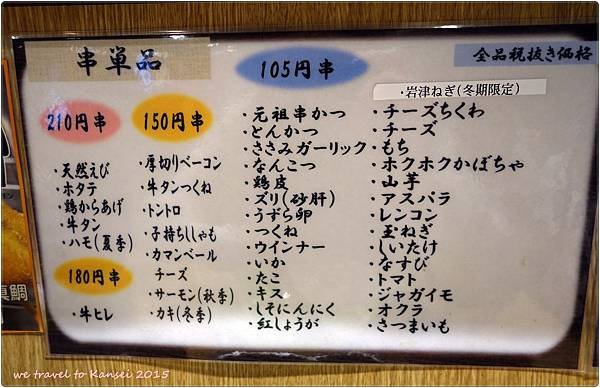 串単品
全品税抜き価格
210円串
・天然えび
・ホタテ
・鶏からあげ
・牛タン
・ハモ(夏季)
180円串
・牛ヒレ
150円串
・厚切りベーコン
・牛タンつくね
・トントロ
・子持ちししゃも
・カマンベール
チーズ
・サーモン(秋季)
・カキ(冬季)
105円串
・元祖串かつ
・とんかつ
・ささみガーリック
・なんこつ
・鶏皮
・ズリ(砂肝)
・うずら卵
・つくね
・ウインナー
・いか
・たこ
・キス
・しそにんにく
・紅しょうが
・岩津ねぎ(冬期限定)
・チーズちくわ
・チーズ
・もち
・ホクホクかぼちゃ
・山芋
・アスパラ
・レンコン
・玉ねぎ
・しいたけ
・なすび
・トマト
・ジャガイモ
・オクラ
・さつまいも
真鯛
we travel to Kansei 2015